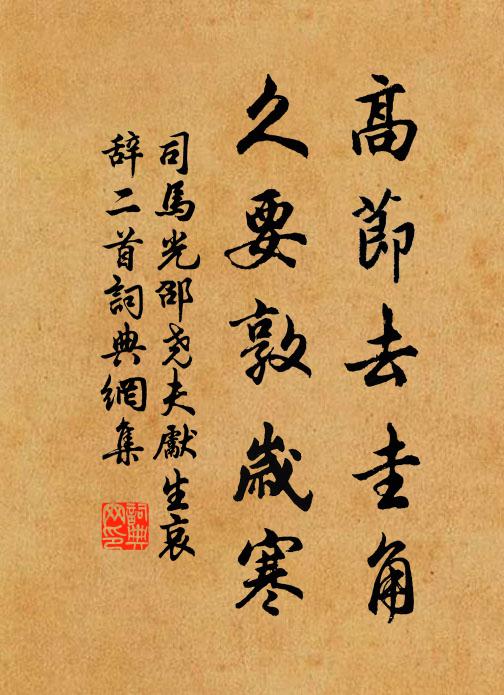 髙莭去圭角
久要敦歲寒
司馬光邵尭夫獻生哀
辞二首詞典網集
詞典网印